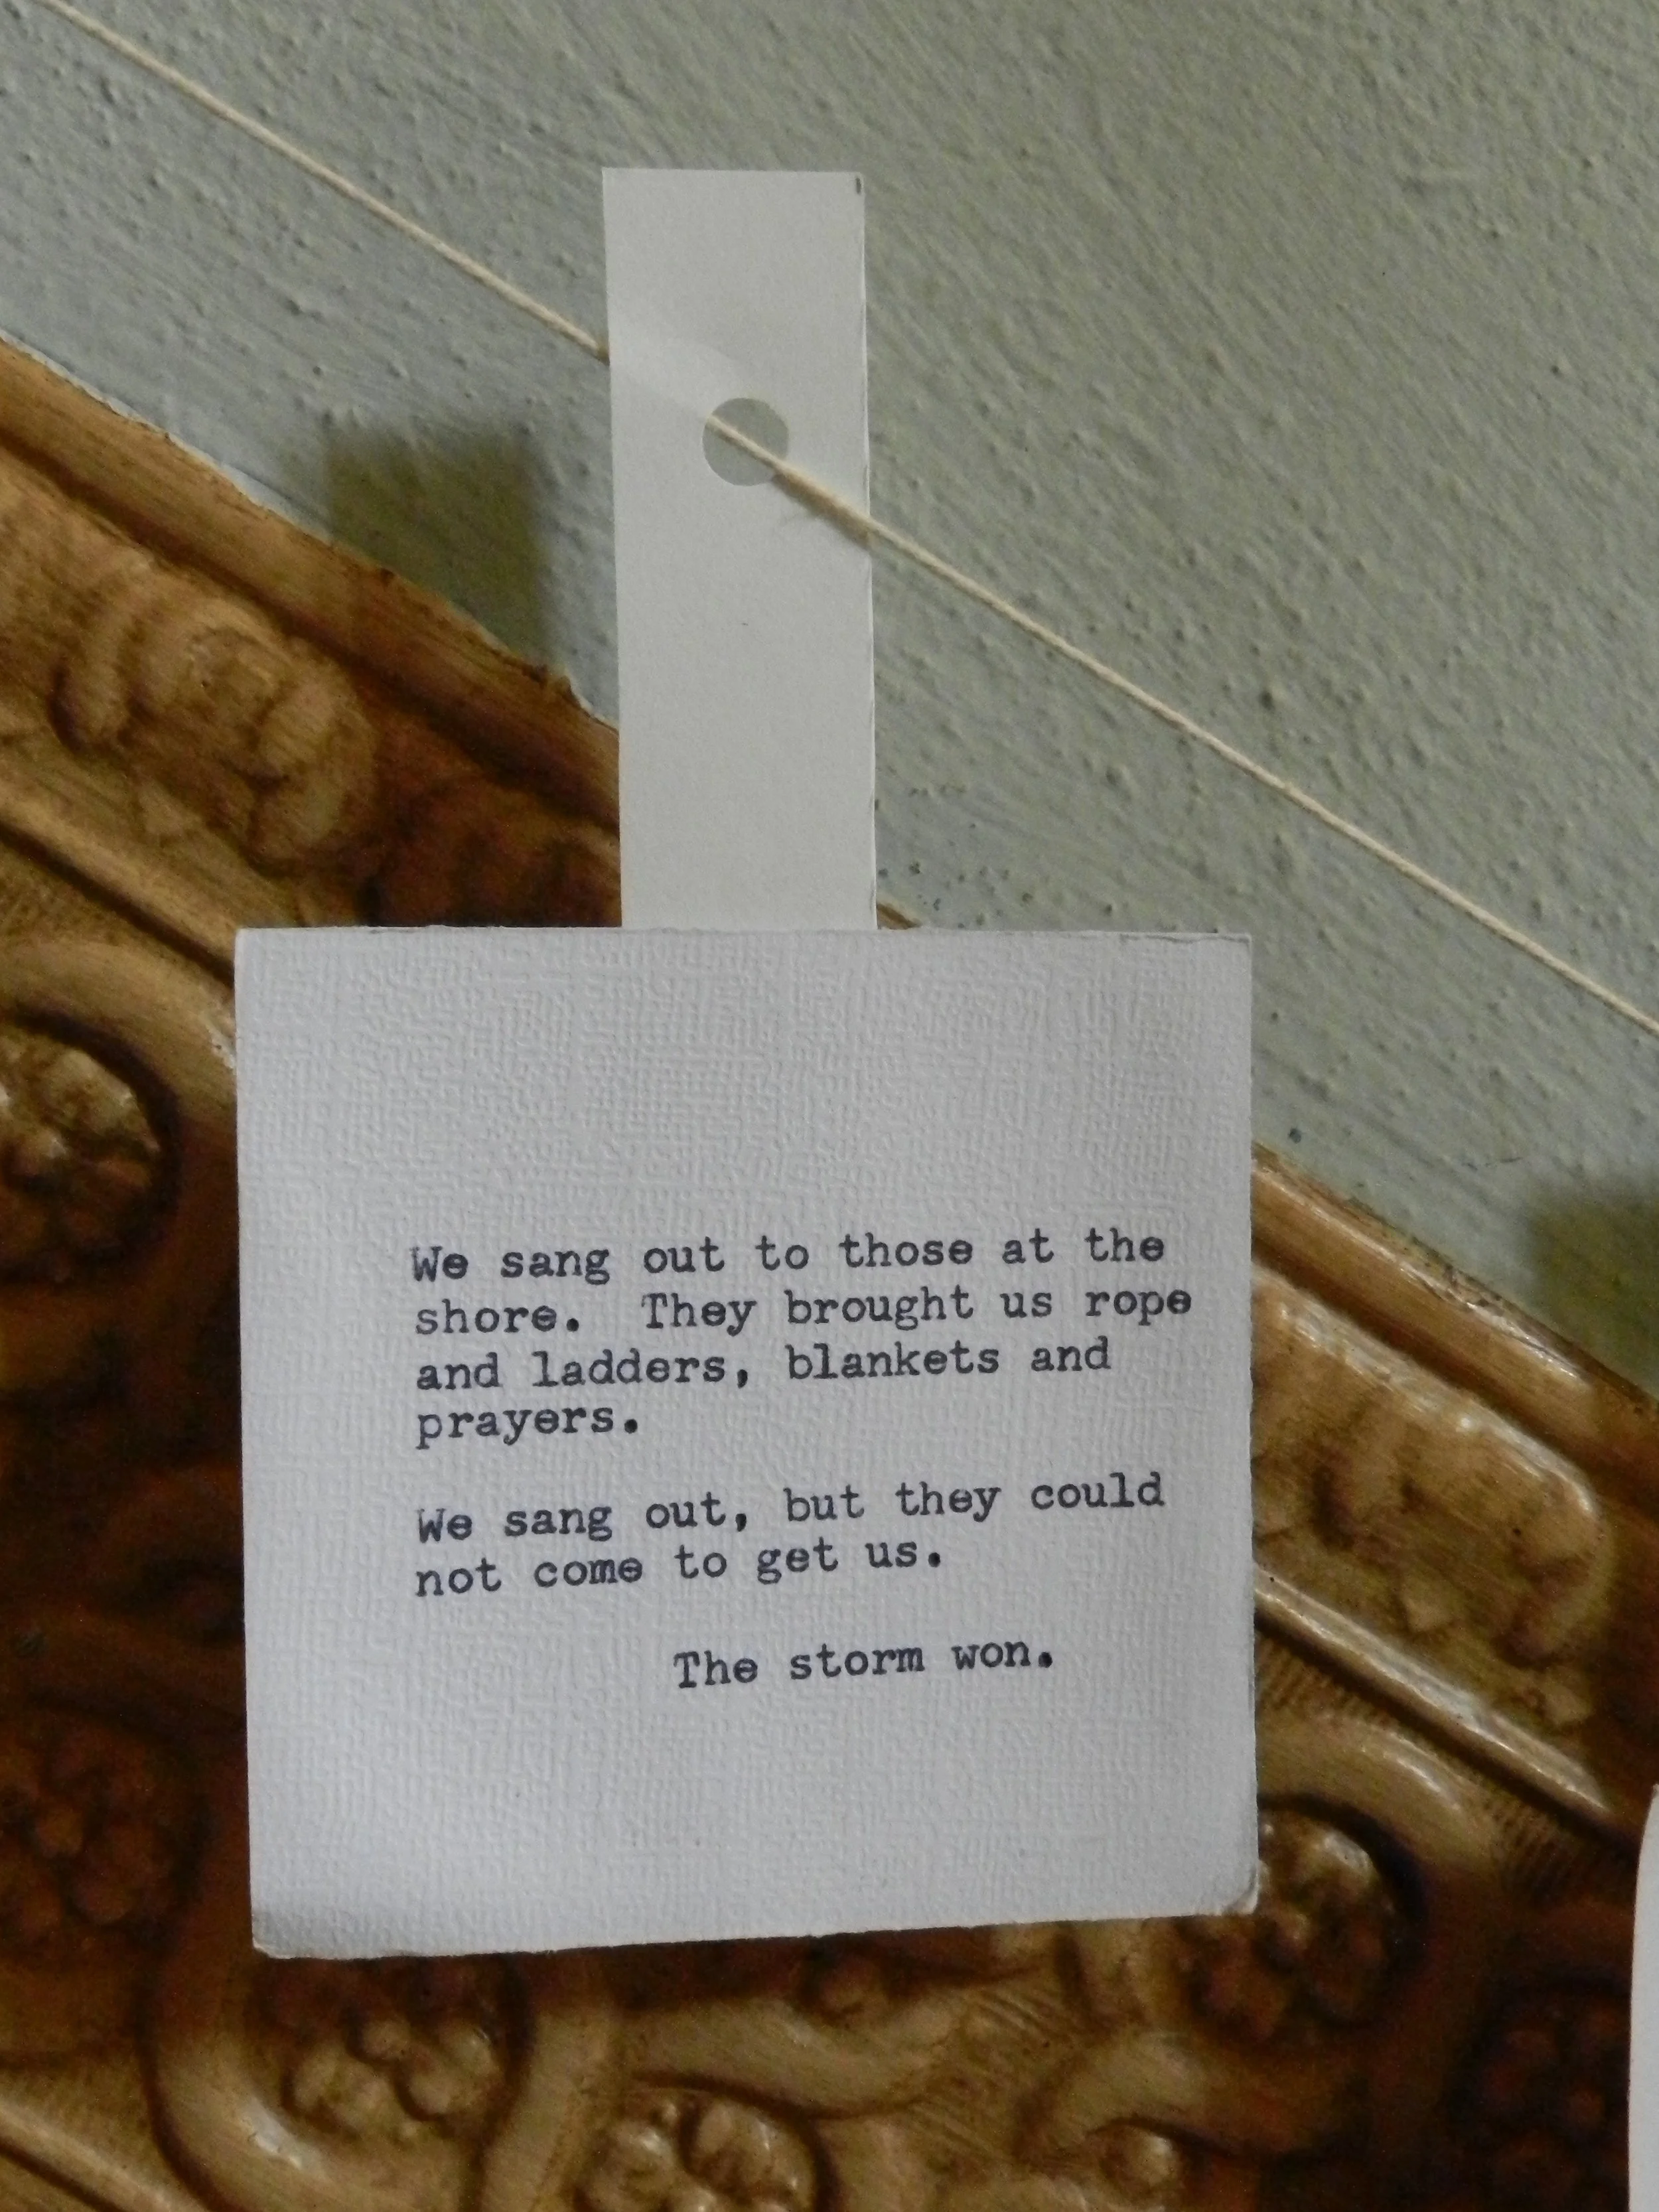 We sang out to those at the
shore.  They brought us rope
and ladders, blankets and
prayers.
We sang out, but they could
not come to get us.
The storm won.